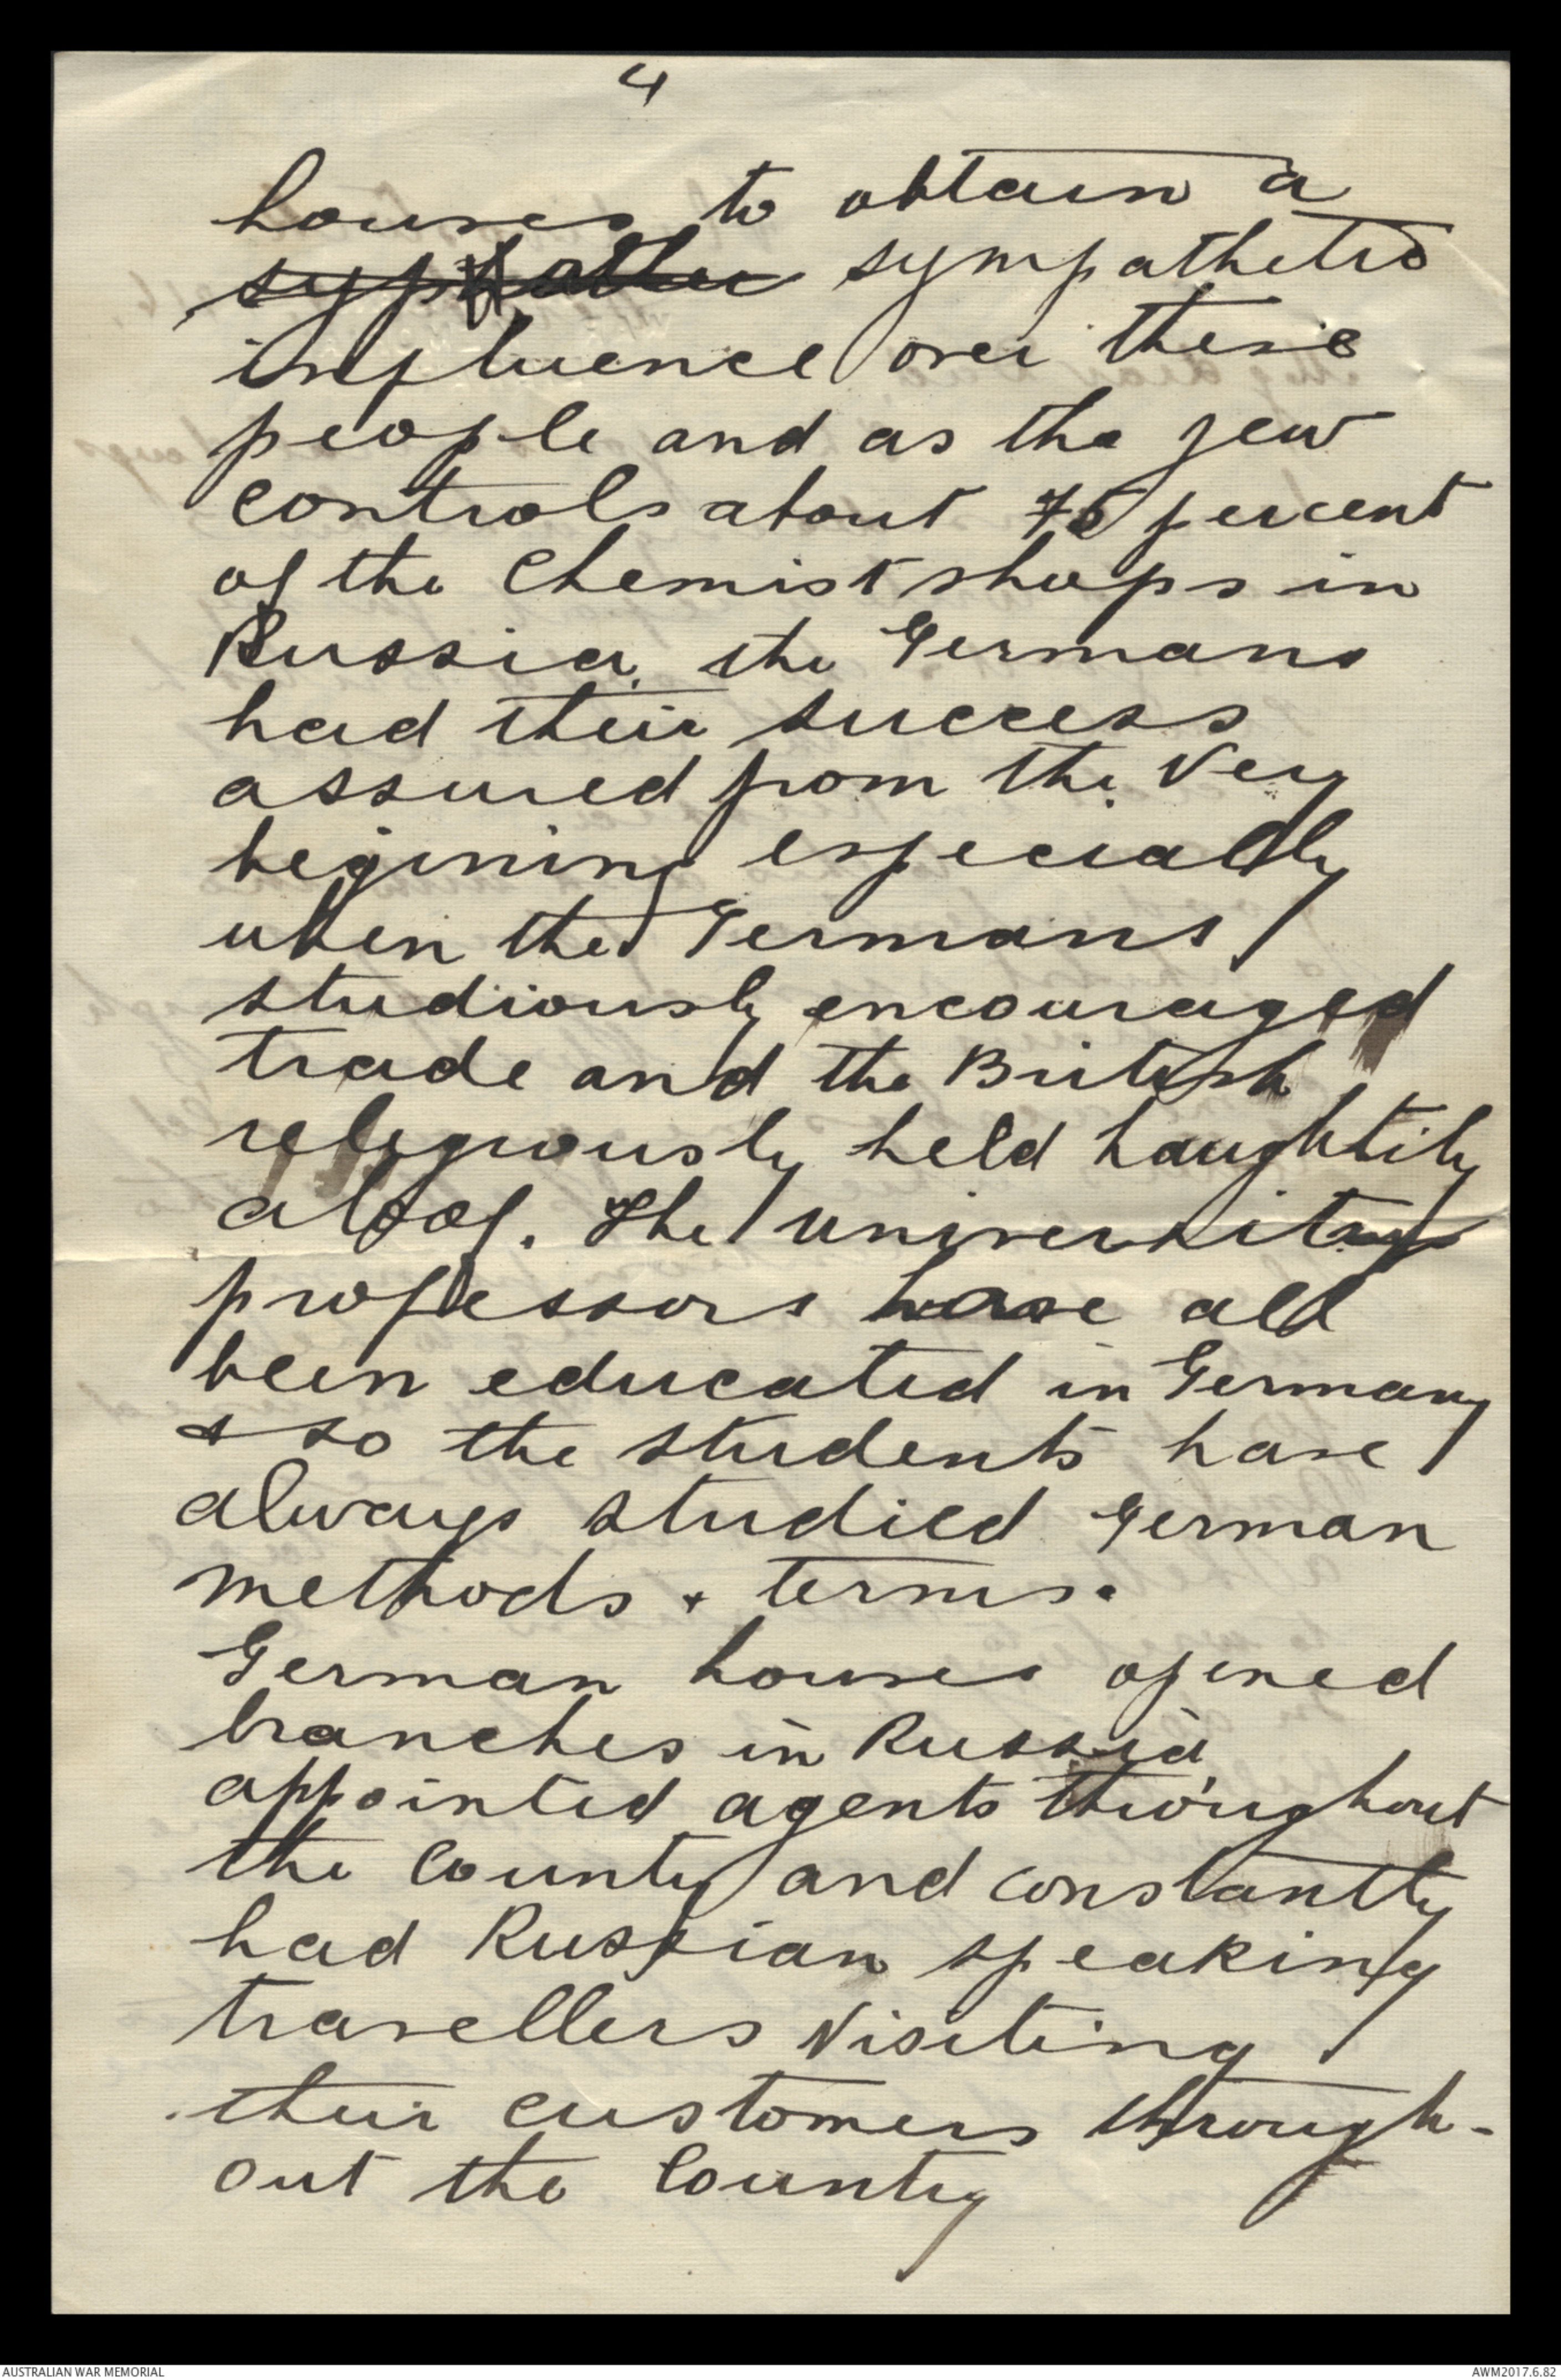 4
houses to obtain a
sympathetic
influence over these
people and as the Jew
controls about 75 percent
of the Chemist shops in
Russia, the Germans
had their success
assured from the very
begining especially
when the Germans
studiously encouraged
trade and the British
religiously held haughtily
aloof. The university
professors have all
been educated in Germany
& so the students have
always studied German
methods & terms.
German houses opened
branches in Russia,
appointed agents throughout
the County and constantly
had Russian speaking
travellers visiting
their customers through-
out the County
AUSTRALIAN WAR MEMORIAL
AWM2017.6.82